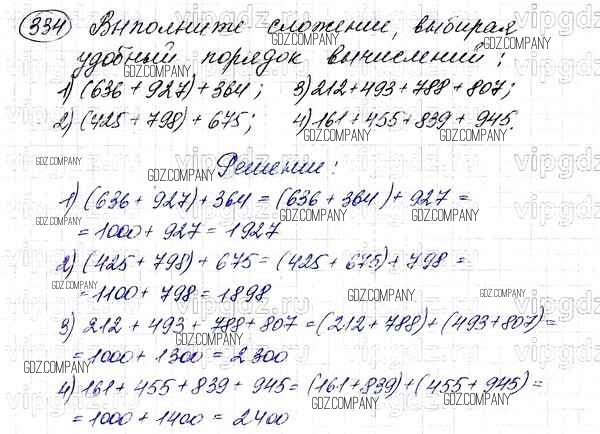 334 Выполните сложение, выбирая
удобный порядок вычислений:
1) (636 + 927) + 364; 3) 212 + 493 + 788 + 807;
2) (425 + 798) + 675; 4) 161 + 455 + 839 + 945.
Решение:
1) (636 + 927) + 364 = (636 + 364) + 927 =
= 1000 + 927 = 1927
2) (425 + 798) + 675 = (425 + 675) + 798 =
= 1100 + 798 = 1898
3) 212 + 493 + 788 + 807 = (212 + 788) + (493 + 807) =
= 1000 + 1300 = 2300
4) 161 + 455 + 839 + 945 = (161 + 839) + (455 + 945) =
= 1000 + 1400 = 2400